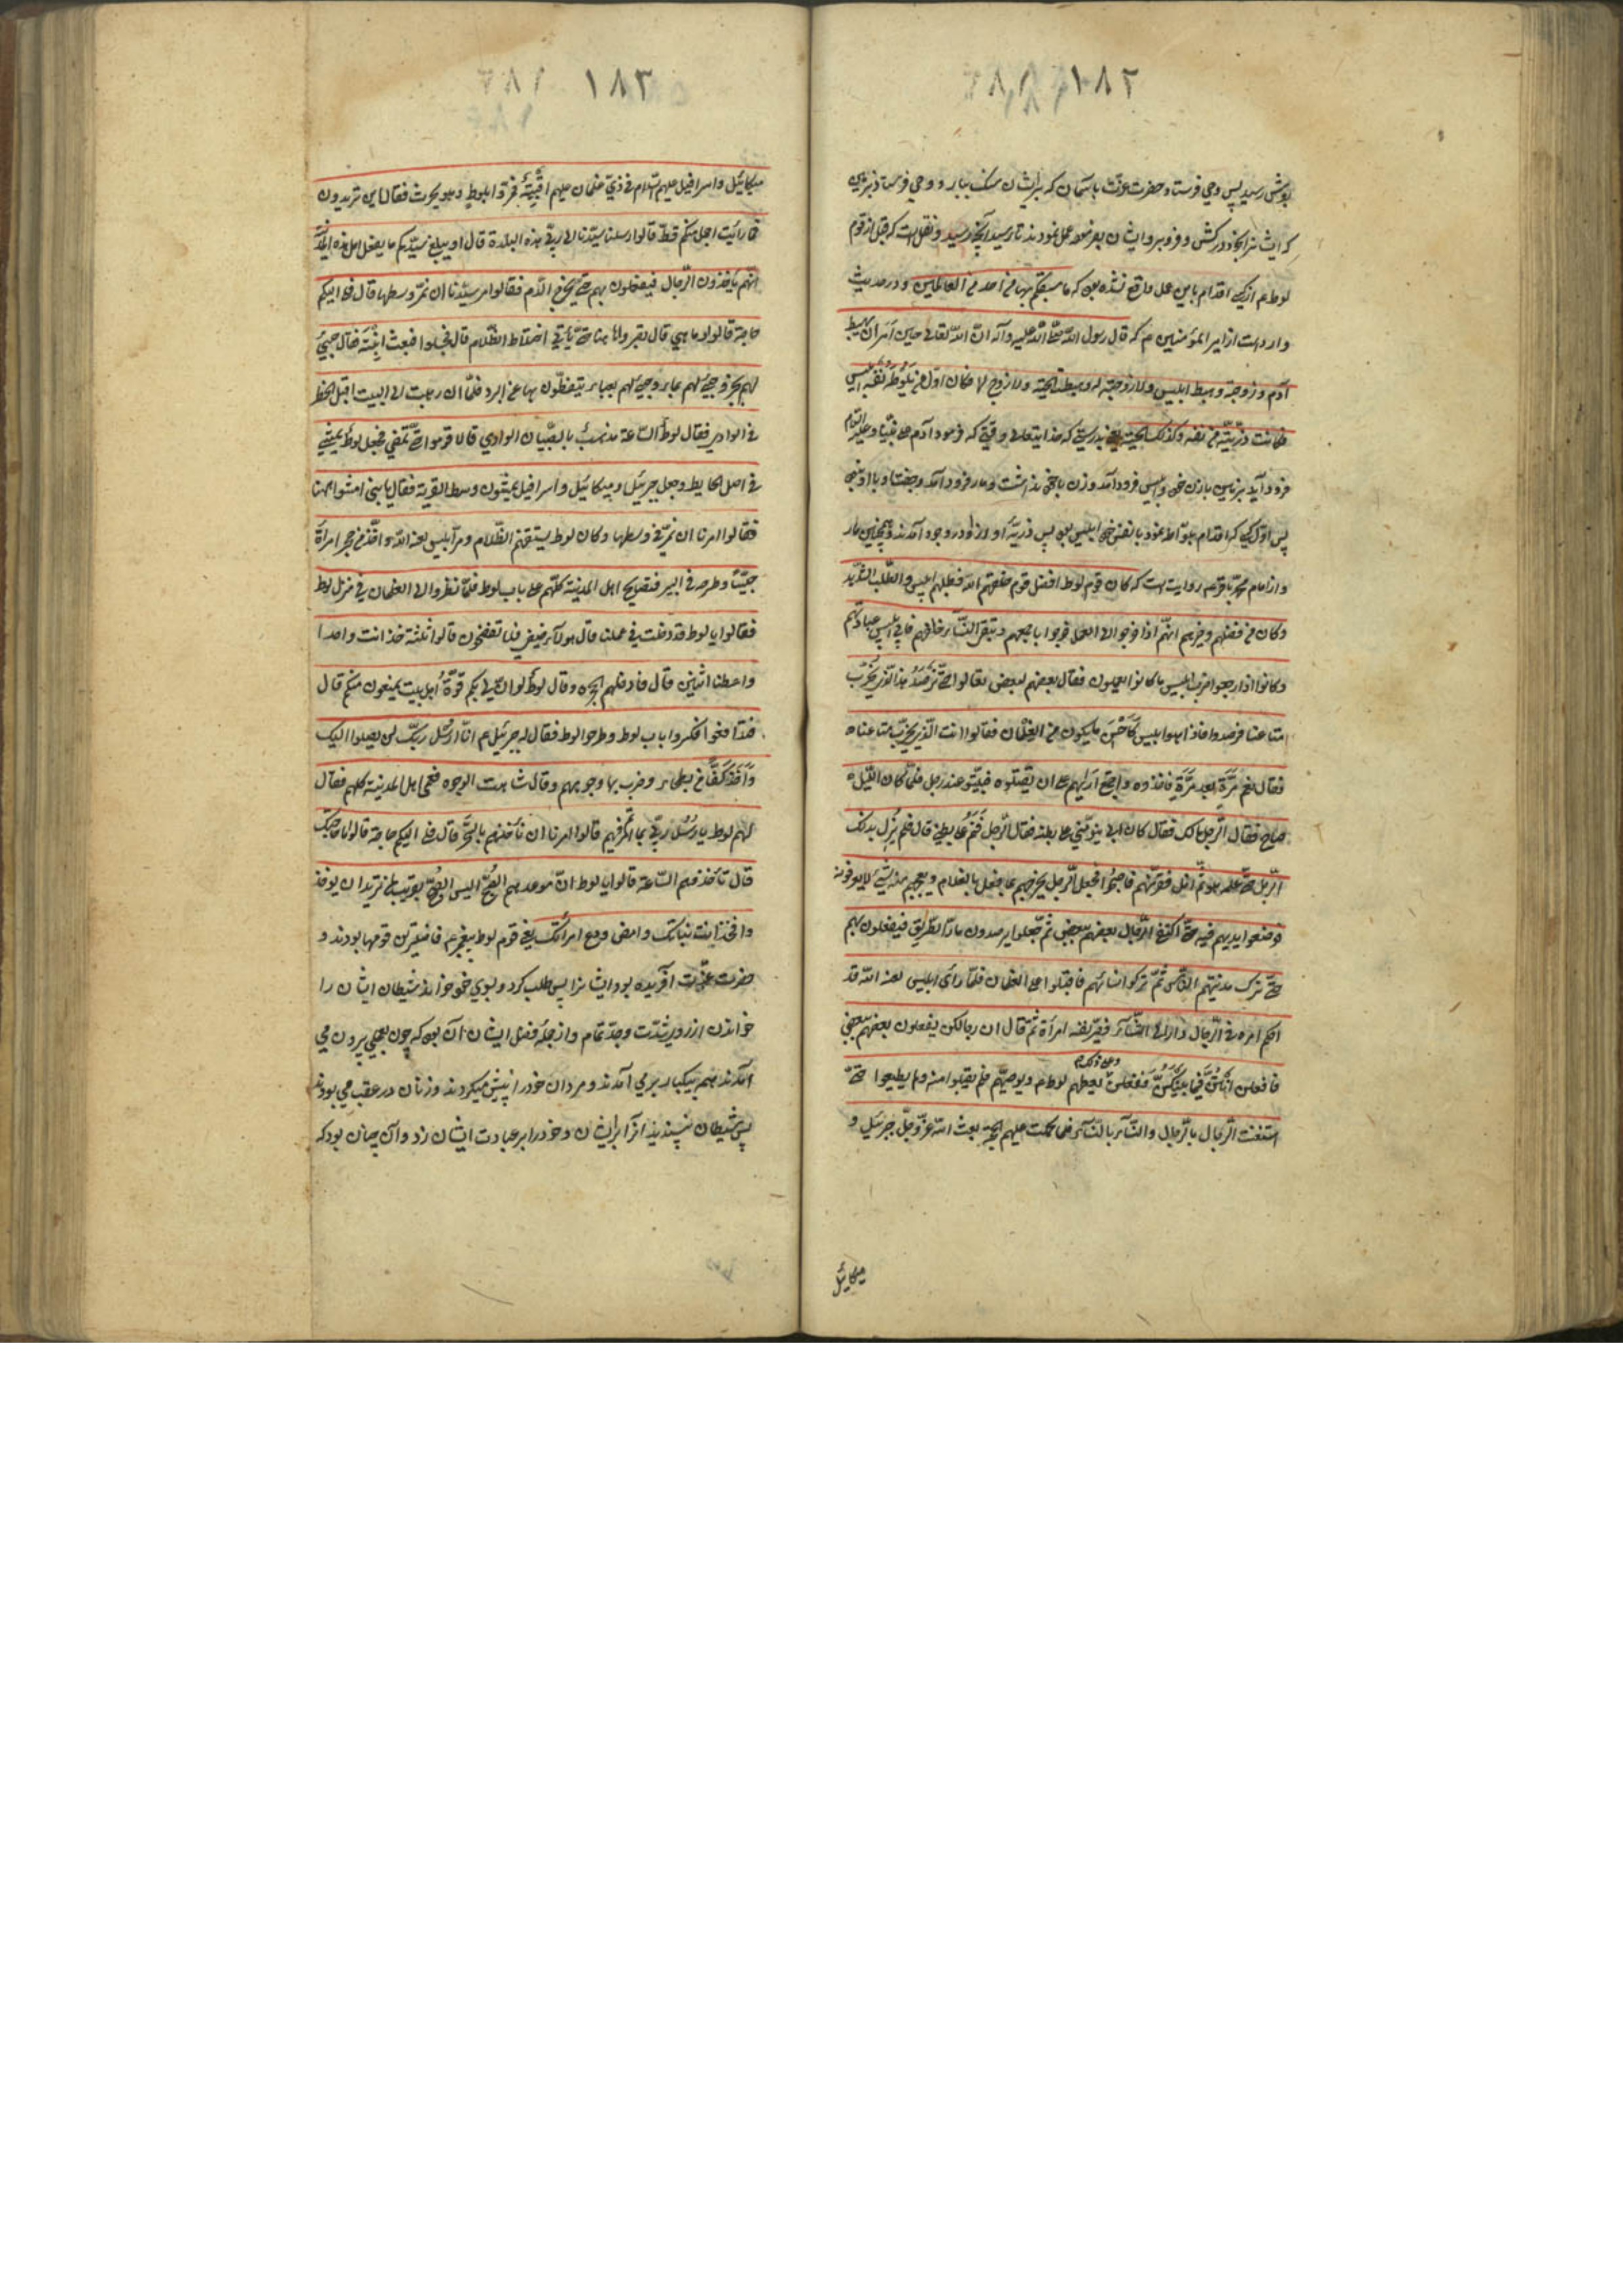 ۱۸۲
بوش رسید پس وحی فرستاد حضرت عزّت باسمان که بر ایشان سنک ببارد و وحی فرستاد بزمین
که ایشانرا بخود درکش و فرو بر و ایشان بفرموده عمل نمودند تا رسید آنچه رسید و نقل است که قبل از قوم
لوط م از کسی اقدام باین عمل واقع نشده بود که ما سبقکم بها من احد من العالمین و در حدیث
وارد است از امیر المؤمنین م که قال رسول الله صلی الله علیه وآله ان الله تعالی حین امر آدم ان یهبط
آدم و زوجته و هبط ابلیس ولا زوجة له و هبطة الحیّة ولا زوج لها فکان اوّل من یلوط بنفسه ابلیس
فکانت ذرّیّته من نفسه و کذلک الحیّة یعنی بدرستی که خدایتعالی وقتی که فرمود آدم علی نبیّنا وعلیه السلام
فرود آید بزمین با زن خود و ابلیس فرود آمد و زن با خود نداشت و مار فرود آمد و جفت با او نبود
پس اوّل کسی که اقدام بلواط نمود با نفس خود ابلیس بود پس ذریّهٔ او از او در وجود آمدند و همچنین مار
و از امام محمّد باقر م روایت است که کان قوم لوط افضل قوم خلقهم الله فطلبهم ابلیس الطّلب الشّدید
وکان من فضلهم وخیرهم انّهم اذا خرجوا الی العمل خرجوا باجمعهم و تبقی النّساء خلفهم فاتی ابلیس عبادتهم
وکانوا اذا رجعوا خرب ابلیس ما کانوا یعملون فقال بعضهم لبعض تعالوا حتّی نرصد هذا الّذی یخرّب
متاعنا فرصدوا فاذا هو ابلیس کاحسن ما یکون من الغلمان فقالوا انت الّذی یخرّب متاعناه
فقال نعم مرّة بعد مرّة فاخذوه و اجتمع رأیهم علی ان یقتلوه فبیّتوه عند رجل فلمّا کان اللّیل ه
صاح فقال الرّجل مالک فقال کان ابی ینوّمنی علی بطنه فقال الرّجل فنم علی بطنی قال فلم یزل بدلک
الرّجل حتّی علّمه بلا ثمّ انسل ففرّ منهم فاصبحوا فجعل الرّجل یخبرهم بما فعل بالغلام و یعجبهم منه شیء لا یعرفونه
فوضعوا ایدیهم فیه حتّی اکتفی الرّجال بعضهم ببعض ثمّ جعلوا یرصدون مارّ الطّریق فیفعلون بهم
حتّی ترک مدینتهم النّاس ثمّ ترکوا نسائهم فاقبلوا علی الغلمان فلمّا رأی ابلیس لعنه الله قد
احکم امره فی الرّجال دار الی النّساء فصیّر نفسه امرأة ثمّ قال ان رجالکن یفعلون بعضهم ببعض
فافعلن انتنّ فیما بینکنّ ففعلن یعظهم لوط م ویوصیهم فلم یقبلوا منه ولم یطیعوا حتّی
استغنت الرّجال بالرّجال والنّساء بالنّساء فلما کملت علیهم الحجّة بعث الله عزّ وجلّ جبرئیل و
میکائیل
۱۸۳
میکائیل واسرافیل علیهم السّلام فی زیّ غلمان علیهم اقبیة فمرّوا بلوط وهو یحرث فقال این تریدون
فما رأیت اجمل منکم قطّ قالوا ارسلنا سیّدنا الی ربّ هذه البلدة قال او یبلغ سیّدکم ما یفعل اهل هذه المدینة
انّهم یأخذون الرّجال فیفعلون بهم حتّی یخرج الدّم فقالوا امر سیّدنا ان نمرّ وسطها قال فلی الیکم
حاجة قالوا وما هی قال تصبرون هنا حتّی یأتی اختلاط الظّلام قال فجلسوا فبعث ابنته فقال جیئی
لهم بخبز وجیئی لهم بماء وجیئی لهم بعباء یتغطّون بها من البرد فلمّا ان رجعت الی البیت اقبل المطر
فی الوادی فقال لوط السّاعة یذهب بالصّبیان الوادی قال قوموا حتّی نمضی فجعل لوط یمشی
فی اصل الحایط وجعل جبرئیل ومیکائیل واسرافیل یمشون وسط القریة فقال یا بنیّ امشوا ههنا
فقالوا امرنا ان نمرّ فی وسطها وکان لوط یستغنم الظّلام ومرّ ابلیس لعنه الله واخذ من حجر امرأة
صبیّا وطرحه فی البیر فتصایح اهل المدینة کلّهم علی باب لوط فلمّا نظروا الی الغلمان فی منزل لوط
فقالوا یا لوط قد دخلت فی عملنا قال هولاء ضیفی فلا تفضحون قالوا ثلثة خذ انت واحدا
واعطنا اثنین قال فادخلهم الحجرة وقال لوط لو انّ لی بکم قوّة اهل بیت یمنعون منکم قال
فتدافعوا فکسروا باب لوط وطرحوا لوط فقال له جبرئیل م انّا رسل ربّک لن یصلوا الیک
واخذ کفّا من بطحاء وضرب بها وجوههم وقال شاهت الوجوه فعمی اهل المدینة کلهم فقال
لهم لوط یا رسل ربّی بما امرکم فیهم قالوا امرنا ان نأخذهم بالسّحر قال فلی الیکم حاجة قالوا ما حاجتک
قال تأخذهم السّاعة قالوا یا لوط انّ موعدهم الصّبح الیس الصّبح بقریب لمن یرید ان یوخذ
وا فخذ انت بناتک وامض ودع امرأتک یعنی قوم لوط پیغمبر م فاضلترین قومها بودند و
حضرت عزّت آفریده بود ایشانرا پس طلب کرد و بوی خود خواند شیطان ایشان را
خواندن از روی شدّت وجدّ تمام و از جملهٔ فضل ایشان آن بود که چون بعملی بیرون می
آمدند همه بیکبار بر می آمدند و مردان خود را پیش میکردند و زنان در عقب می بودند
پس شیطان نپسندید انرا بر ایشان و خود را بر عبادت ایشان زد و آن چنان بود که